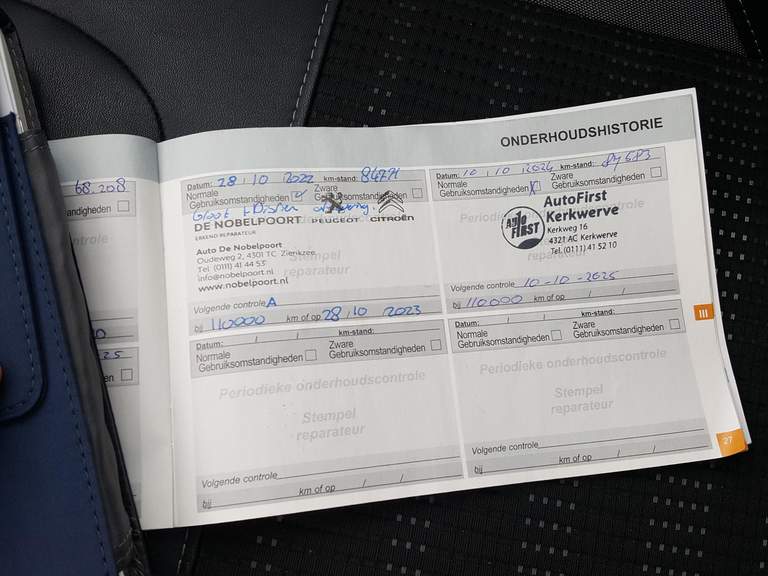 ONDERHOUDSHISTORIE
68.208
standigheden
Datum: 28 / 10 / 2022 km-stand:
Normale Zware
Gebruiksomstandigheden Gebruiksomstandigheden
Groot +
DE NOBELPOORT PEUGEOT CITROËN
ERKEND REPARATEUR
Auto De Nobelpoort
Oudeweg 2, 4301 TC Zierikzee
Tel. (0111) 41 44 53
info@nobelpoort.nl
www.nobelpoort.nl
Stempel
reparateur
Volgende controle A
bij 110000 km of op 28 / 10 / 2023
Datum: 10 / 10 / 2024 km-stand: 87683
Normale Zware
Gebruiksomstandigheden Gebruiksomstandigheden
Auto FIRST
AutoFirst
Kerkwerve
Kerkweg 16
4321 AC Kerkwerve
Tel. (0111) 41 52 10
Stempel
reparateur
Volgende controle 10-10-2025
bij 110000 km of op / /
standigheden
Datum: / / km-stand:
Normale Zware
Gebruiksomstandigheden Gebruiksomstandigheden
Periodieke onderhoudscontrole
Stempel
reparateur
Volgende controle
bij km of op / /
Datum: / / km-stand:
Normale Zware
Gebruiksomstandigheden Gebruiksomstandigheden
Periodieke onderhoudscontrole
Stempel
reparateur
Volgende controle
bij km of op / /
III
27